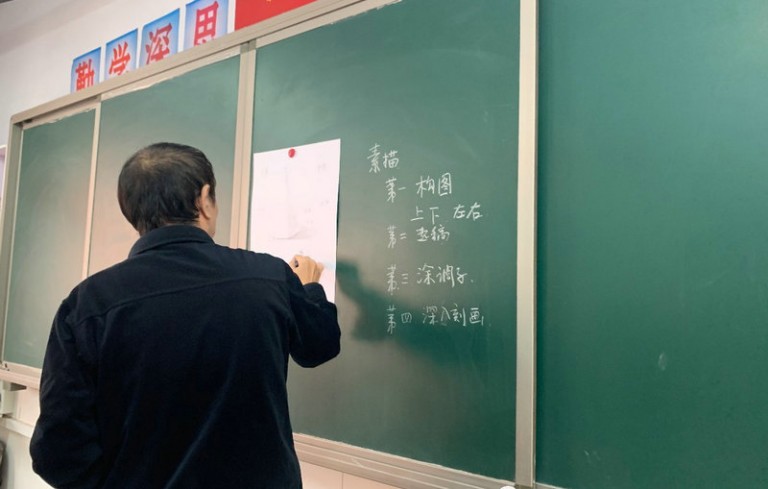 勤学深思
素描
第一 构图
上下 左右
第二 起稿
第三 涂调子.
第四 深入刻画